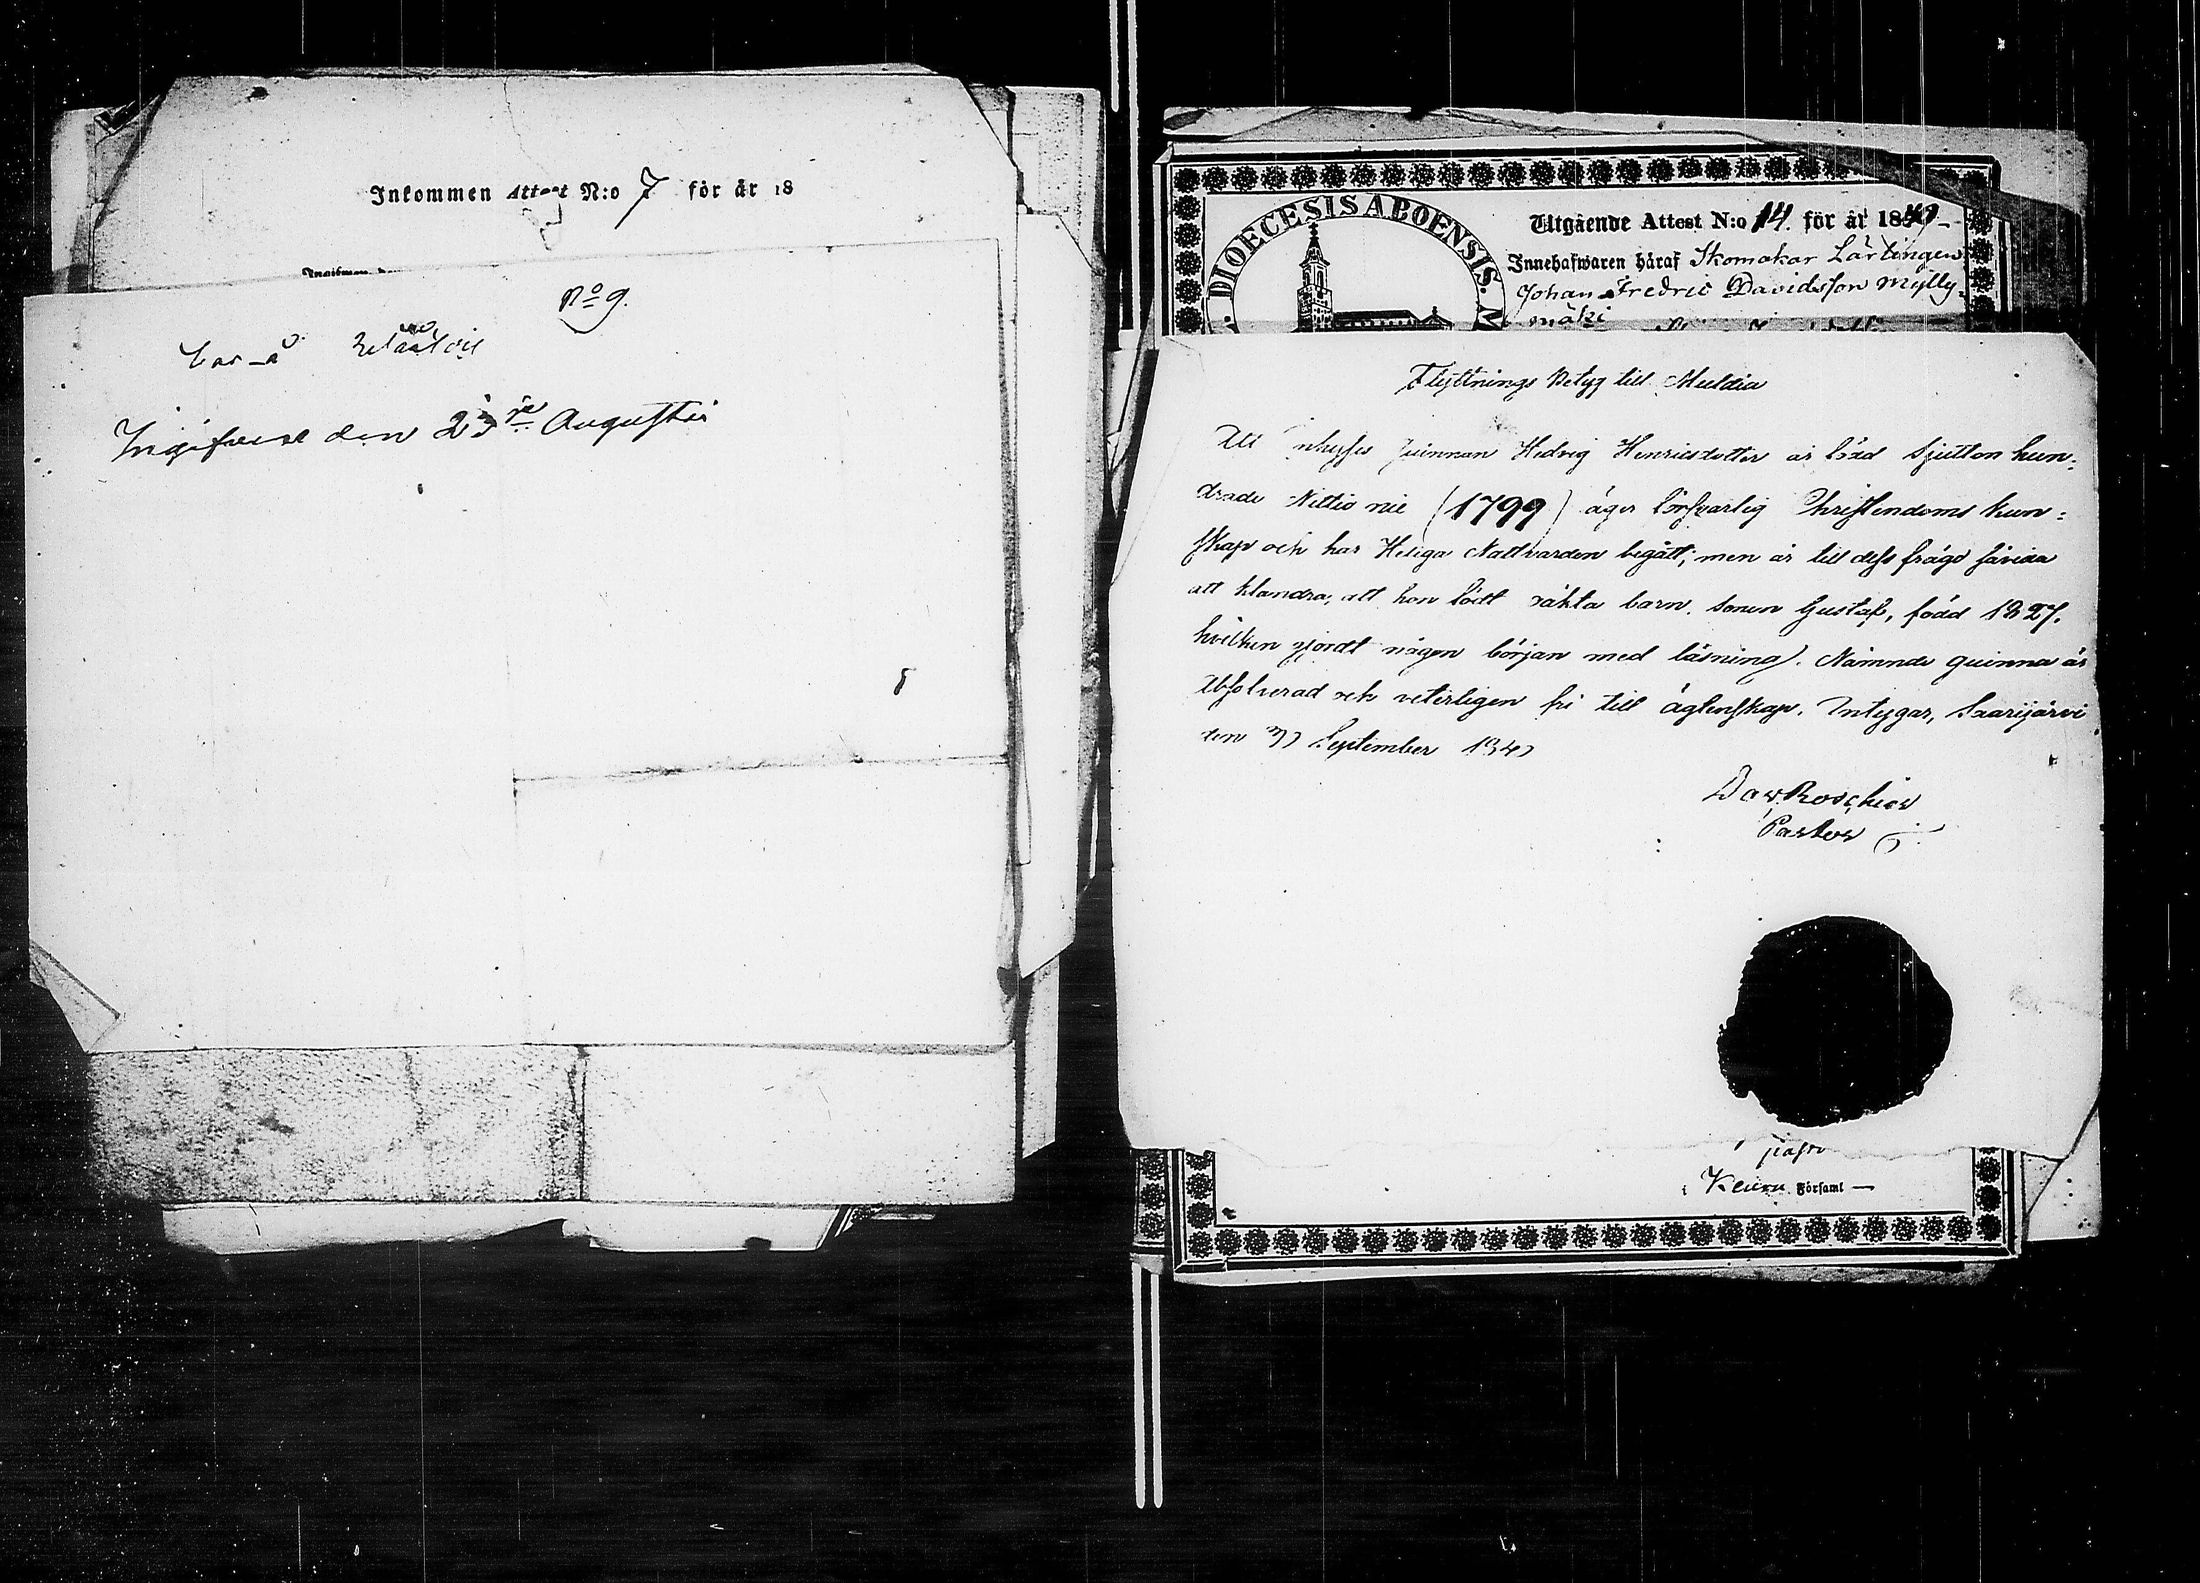 Inkommen Attest N:o 7 för år 18
No 9.
Ingifven den 23 Augusti
DIOECESIS ABOENSIS.
Utgående Attest N:o 14. för år 1840
Innehafwaren häraf Skomakar Lärlingen
Johan Fredric Davidsson Mylly-
mäki
Flyttnings Betyg till Multia
Att Inhyses Quinnan Hedvig Henricsdotter är född sjutton hun-
drade Nittio nie (1799) äger försvarlig Christendoms kun-
skap och har Heliga Nattvarden begått; men är till dess frägd
att klandra, att hon födt oäkta barn. sonen Gustaf, född 1827.
hvilken gjordt någon början med läsning). Nämnde quinna är
Absolverad och veterligen fri till ägtenskap. Intygar, Saarijärvi
den September
Dav. Roschier
Pastor
Keuru Församl